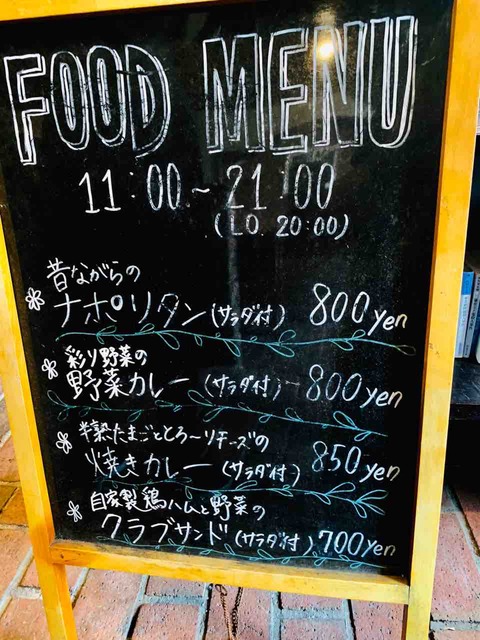 FOOD MENU
11:00~21:00
(LO 20:00)
昔ながらの
ナポリタン(サラダ付) 800yen
彩り野菜の
野菜カレー(サラダ付) 800yen
半熟たまごととろ〜りチーズの
焼きカレー(サラダ付) 850yen
自家製鶏ハムと野菜の
クラブサンド(サラダ付) 700yen